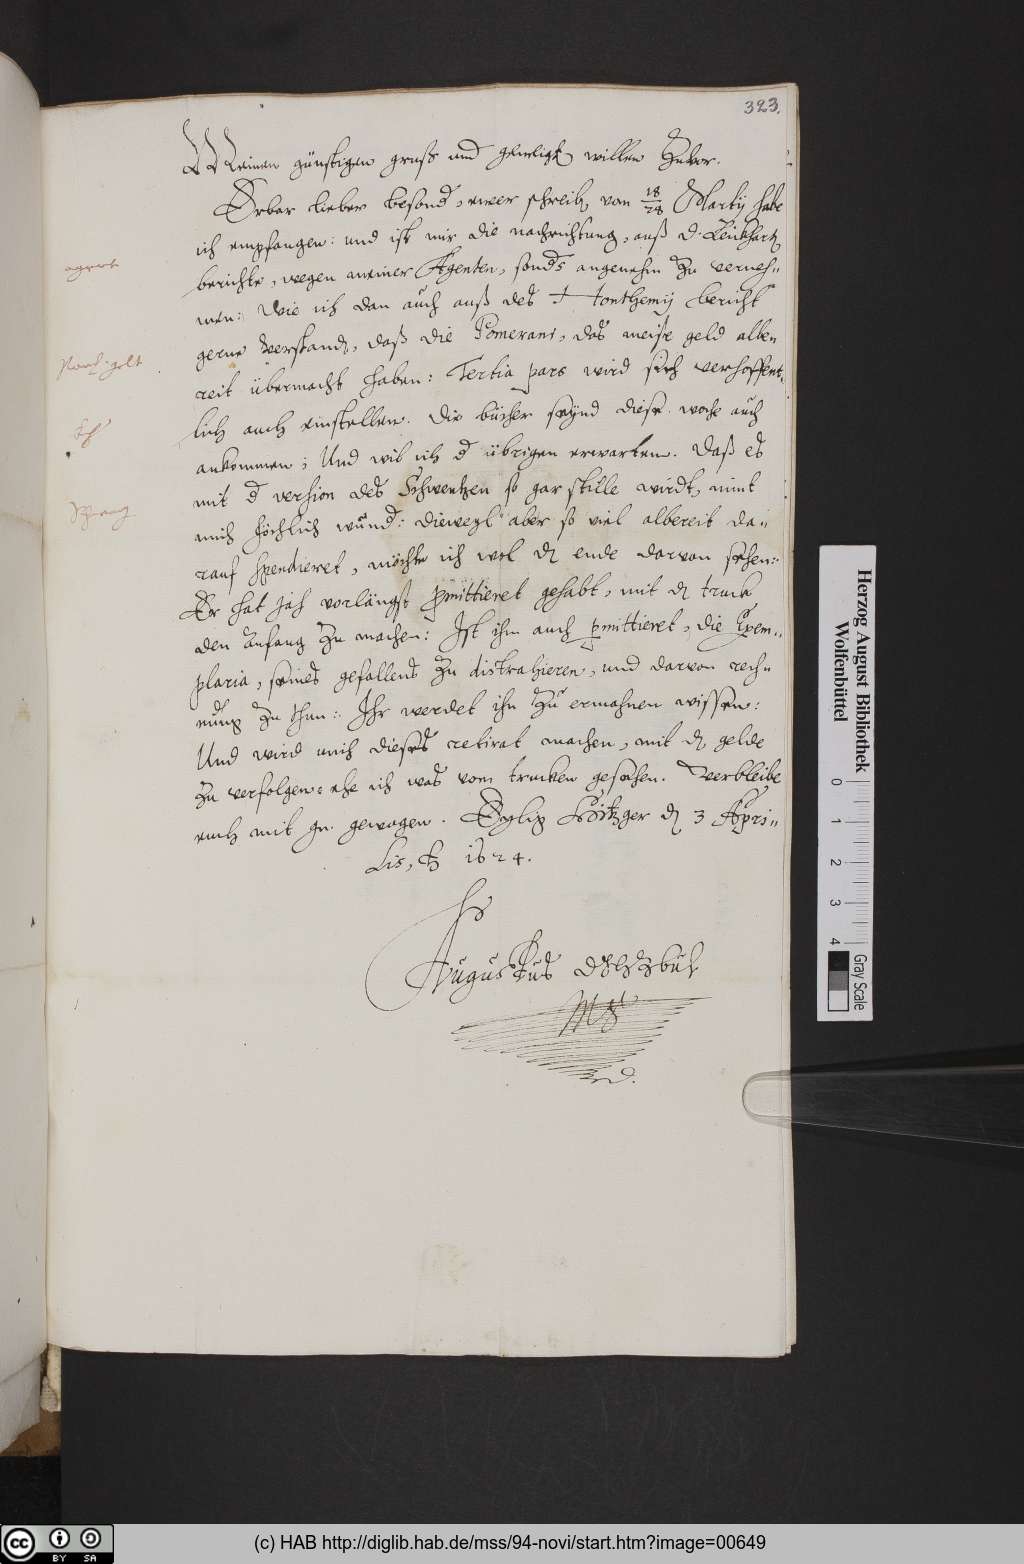 323.
Meinen günstigen gruß und geneigt willen Zuvor.
Erbar lieber besond, ewer schreib, vom 18/28 Martij habe
ich empfangen: und ist mir die nachrichtung, auß d.
berichte, wegen meiner Agenten, sonds angenehm Zu verneh=
men: Wie ich dan auch auß des bericht
gerne verstand, daß die Pomerani, das meiste geld albe=
reit übermacht haben: Tertia pars wird sich verhoffent,
lich auch einstellen. Die bücher seynd diese woche auch
ankommen; Und wil ich d übrigen erwarten. Daß es
mit d version des Schwentzen so gar stille wirdt, nimt
mich höchlich wund: diewegl aber so viel albereit da=
rauf spendieret, möchte ich wol dz ende darvon sehen:
Er hat jah vorlängst pmittieret gehabt, mit dz truck
den Anfang Zu machen: Ist ihm auch pmittieret, die Exem=
plaria, seines gefallens Zu distrahieren, und darvon rech=
nung Zu thun: Ihr werdet ihn Zu ermahnen wissen:
Und wird mich dieses retirat machen, mit dz gelde
Zu verfolgen: ehe ich was vom trucken gesehen. Verbleibe
euch mit gn. gewogen. dz 3 Apri=
lis, 1624.
Augustus
Herzog August Bibliothek
Wolfenbüttel
0 1 2 3 4
Gray Scale
cc BY SA
(c) HAB http://diglib.hab.de/mss/94-novi/start.htm?image=00649